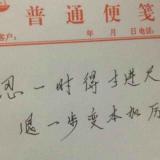 普通便笺
客户： 年 月 日 电话：
忍一时得寸进尺
退一步变本加厉